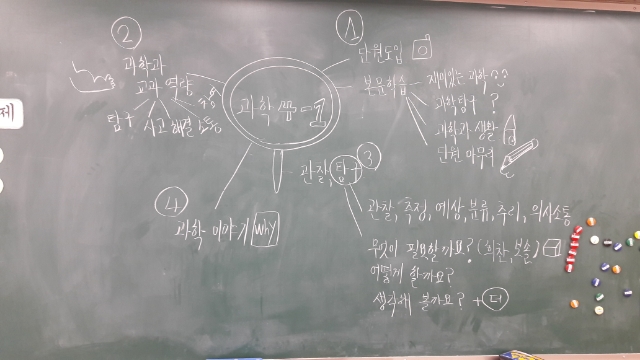 ①
단원도입
본문학습
재미있는 과학
과학탐구 ?
과학과 생활
단원 마무리
②
과학과
교과 역량
탐구 사고 해결
과학
-1
관찰, 탐구 ③
관찰, 측정, 예상, 분류, 추리, 의사소통
무엇이 필요할까요? (희찬, 보솔)
어떻게 할까요?
생각해 볼까요? + 더
④
과학 이야기 Why
제